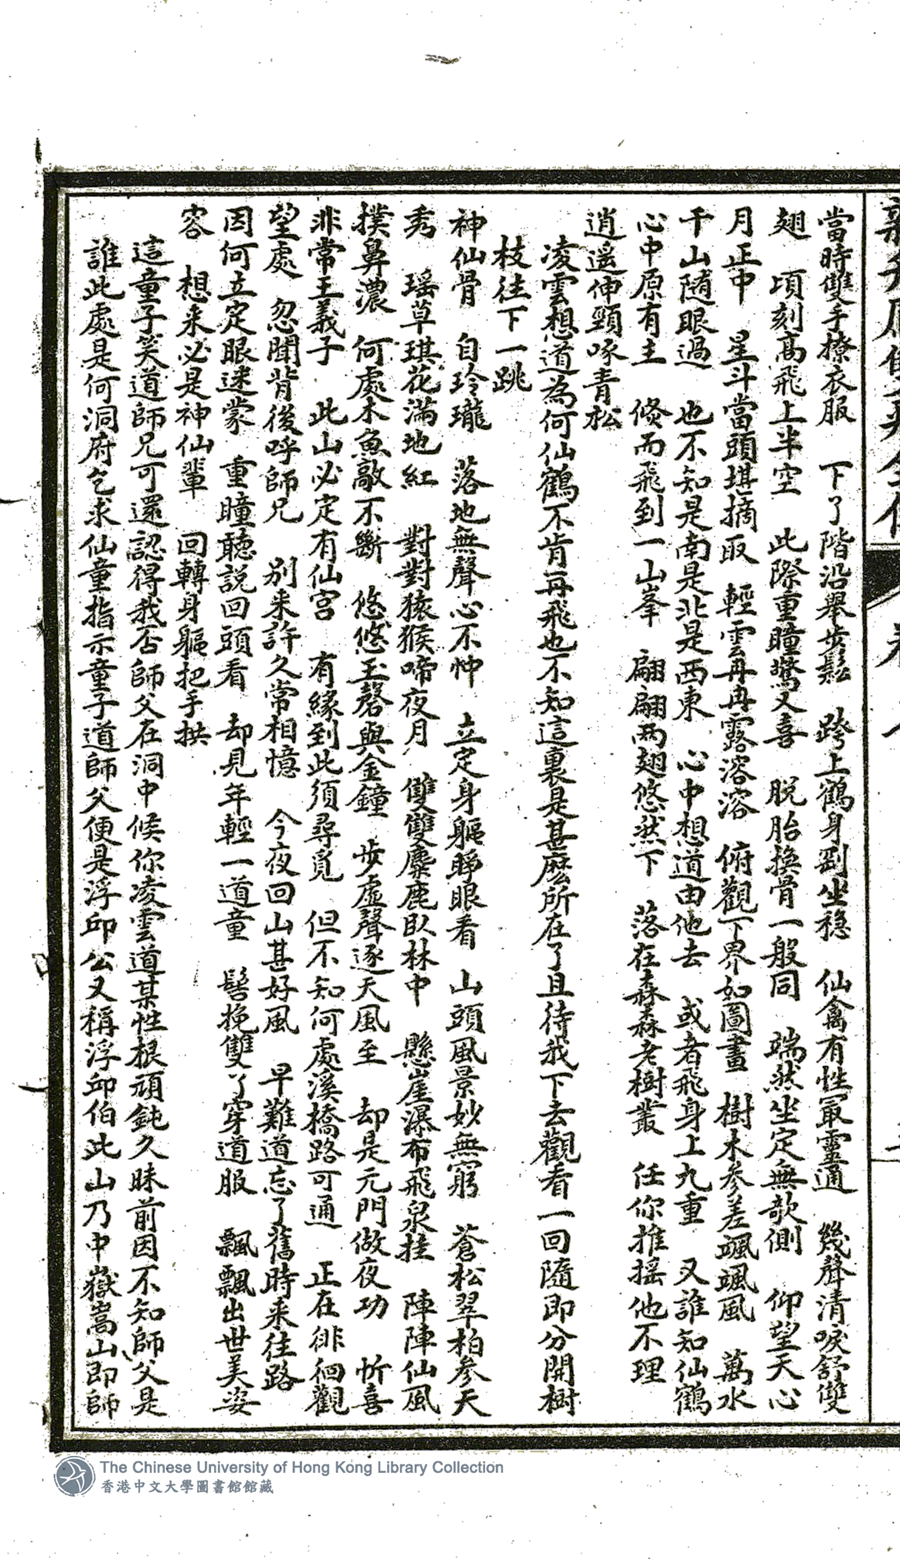 當時雙手撩衣服　下了階沿舉步鬆　跨上鶴身剛坐穩　仙禽有性最靈通　幾聲清唳舒雙
翅　頃刻高飛上半空　此際重瞳驚又喜　脫胎換骨一般同　端然坐定無欹側　仰望天心
月正中　星斗當頭堪摘取　輕雲冉冉露溶溶　俯觀下界如圖畫　樹木參差颯颯風　萬水
千山隨眼過　也不知是南是北是西東　心中想道由他去　或者飛身上九重　又誰知仙鶴
心中原有主　倏而飛到一山峯　翩翩兩翅悠然下　落在森森老樹叢　任你推搖他不理
逍遥伸頸啄青松
凌雲想道為何仙鶴不肯再飛也不知這裏是甚麽所在了且待我下去觀看一回隨即分開樹
枝往下一跳
神仙骨　自玲瓏　落地無聲心不忡　立定身軀睜眼看　山頭風景妙無窮　蒼松翠柏參天
秀　瑶草琪花滿地紅　對對猿猴啼夜月　雙雙麋鹿臥林中　懸崖瀑布飛泉挂　陣陣仙風
撲鼻濃　何處木魚敲不斷　悠悠玉磬與金鐘　步虛聲逐天風至　却是元門做夜功　忻喜
非常王義子　此山必定有仙宮　有緣到此須尋覓　但不知何處溪橋路可通　正在徘徊觀
望處　忽聞背後呼師兄　別來許久常相憶　今夜回山甚好風　早難道忘了舊時來往路
因何立定眼迷蒙　重瞳聽說回頭看　却見年輕一道童　髻挽雙丫穿道服　飄飄出世美姿
容　想來必是神仙輩　回轉身軀把手拱
這童子笑道師兄可還認得我否師父在洞中候你凌雲道某性根頑鈍久昧前因不知師父是
誰此處是何洞府乞求仙童指示童子道師父便是浮邱公又稱浮邱伯此山乃中嶽嵩山即師
The Chinese University of Hong Kong Library Collection
香港中文大學圖書館館藏